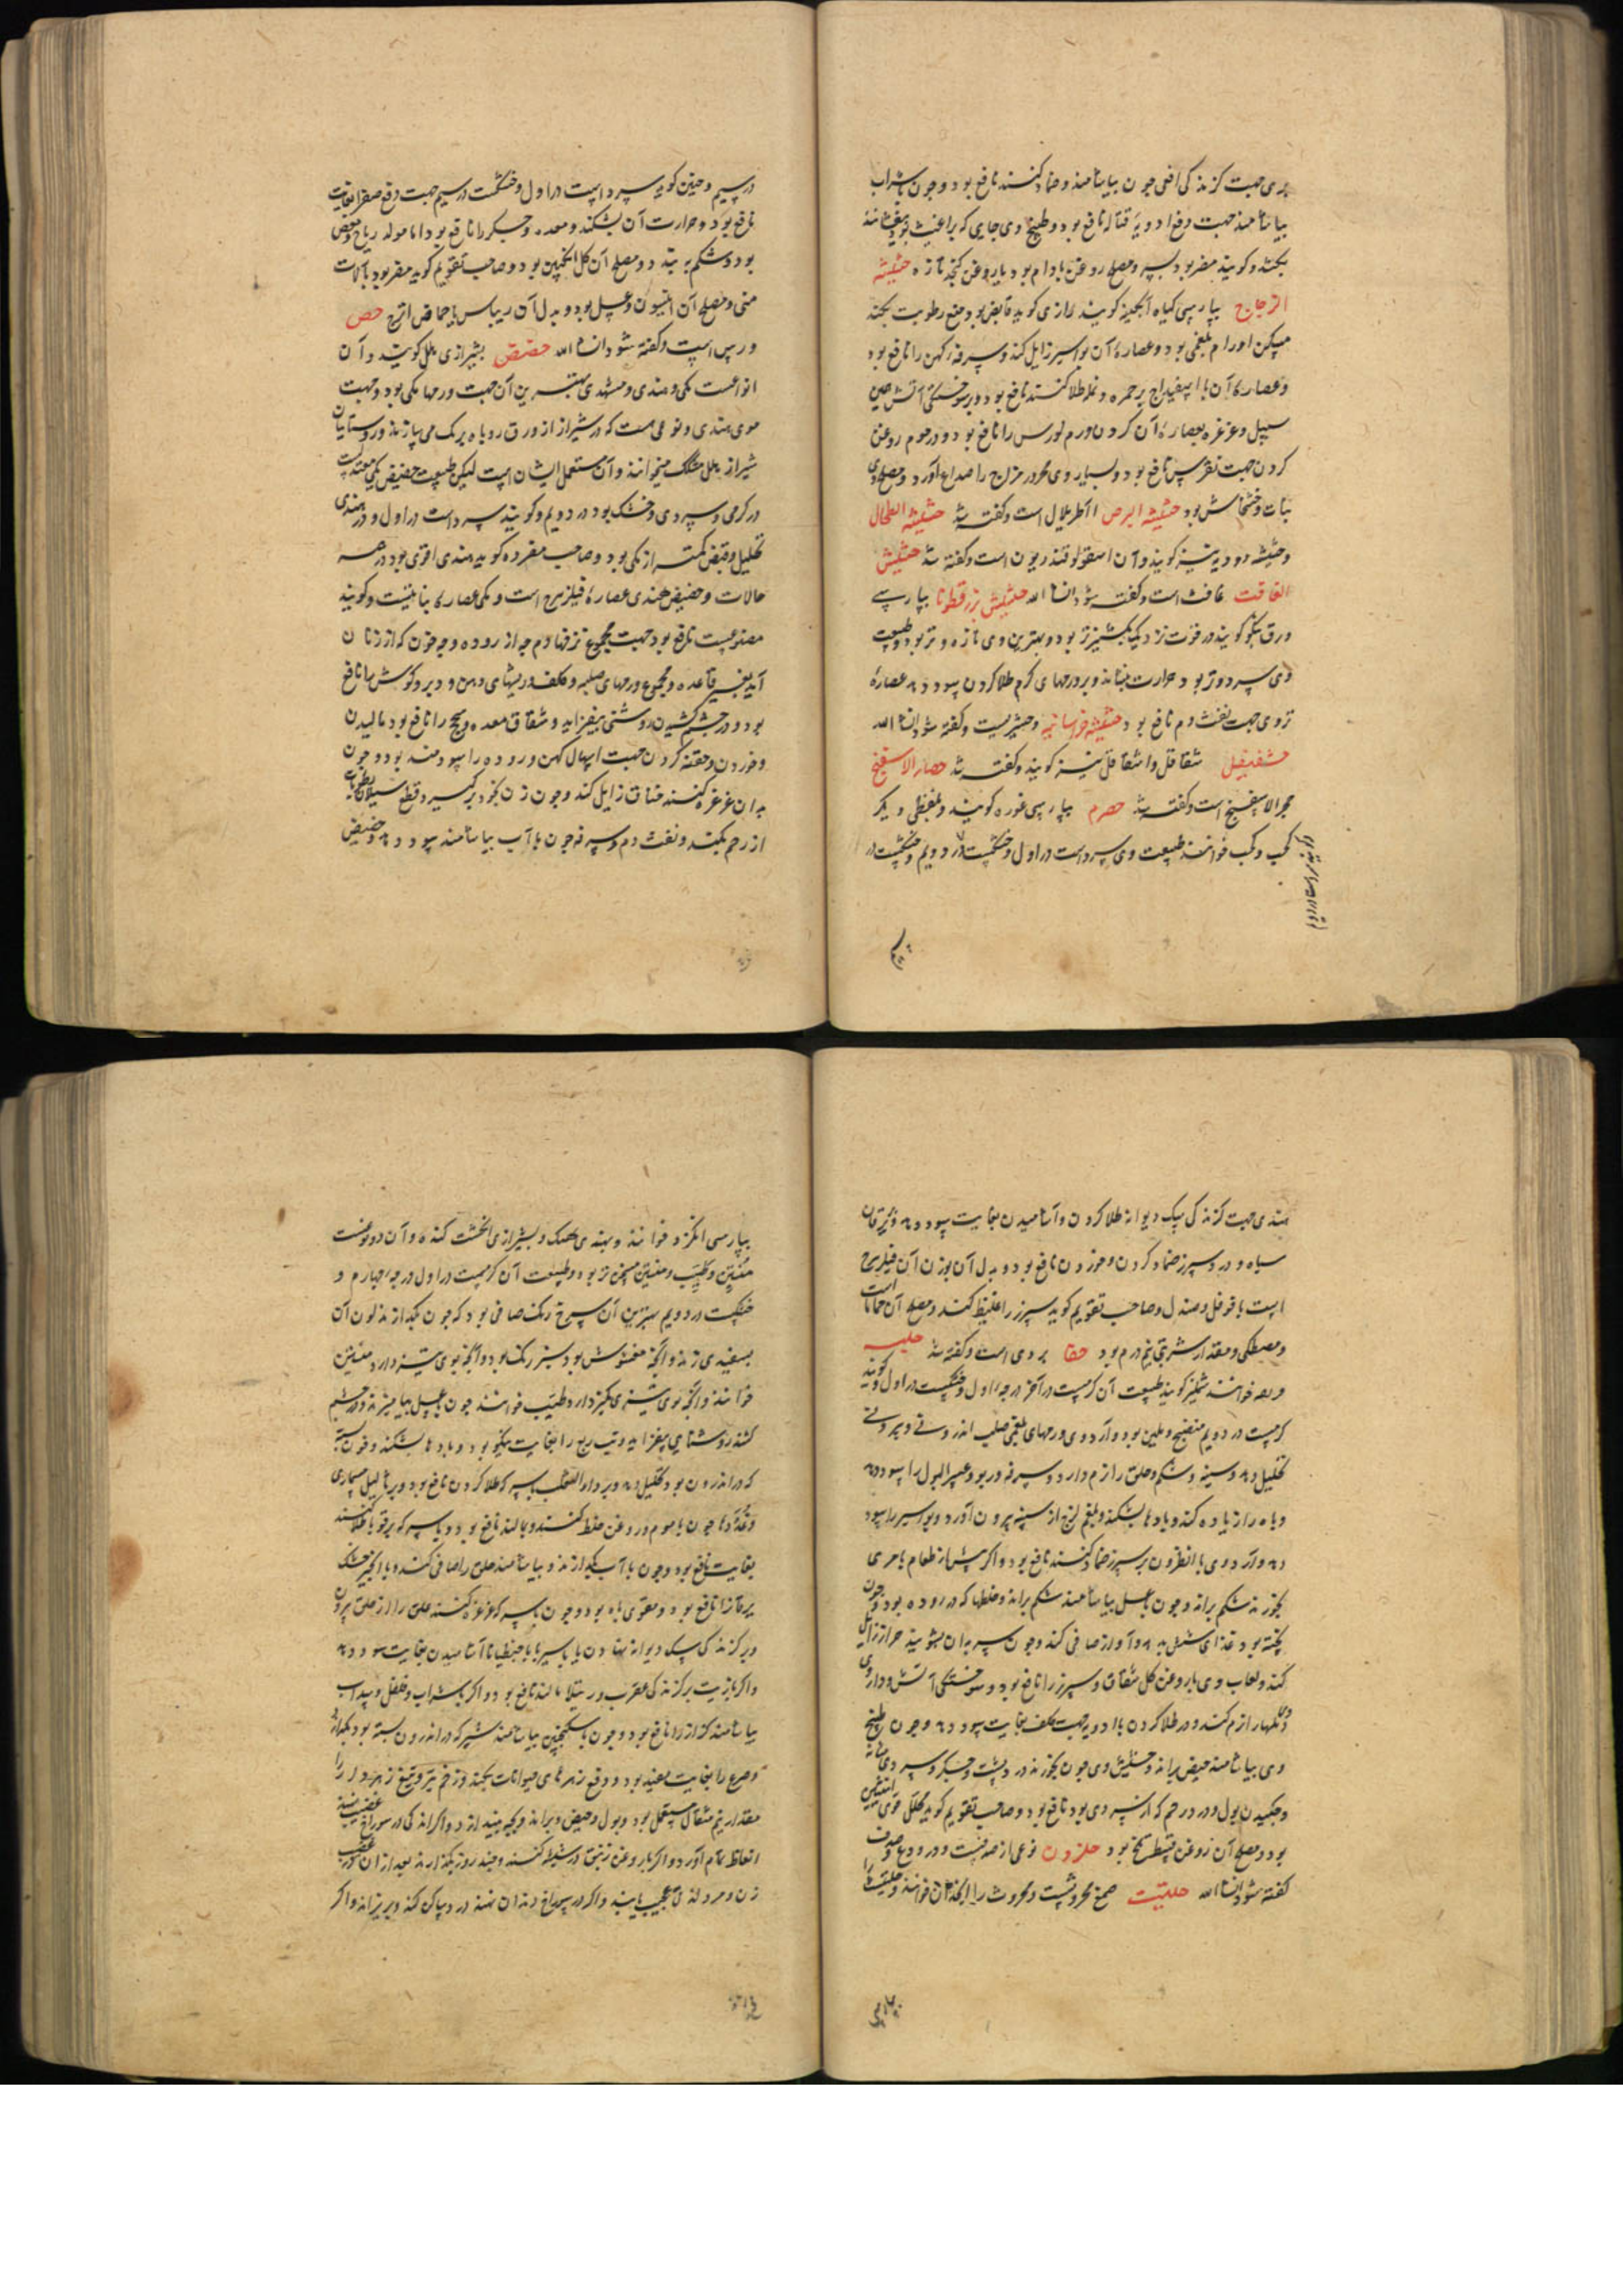 بری جهت کزندکی افعی چون بیاشامند وضماد کنند نافع بود وچون باشراب
بیاشامند جهت دفع ادویهٔ قتاله نافع بود وطبیخ وی جایی که براغیث بود بیفشانند
بکشد وکویند مضر بود بسپرز ومصلح روغن بادام بود یا روغن کنجد تازه حشیشة
الزجاج بپارسی کیاه آبکینه کویند رازی کوید قابض بود ومنع رطوبت بکند
مسکن اورام بلغمی بود وعصارهٔ آن بواسیر زایل کند وسرفهٔ کهن را نافع بود
وعصارهٔ آن با اسفیداج برحمره ونمله طلا کنند نافع بود وبرسوختکی آتش همین
سبیل وغرغره بعصارهٔ آن کردن ورم لوزتین را نافع بود ودر موم روغن
کردن جهت نقرس نافع بود وبسیار وی محرور مزاج را صداع آورد ومصلح وی
نبات وخشخاش بود حشیشة البرص آاطریلال است وکفته شد حشیشة الطحال
وحشیشه دودیه نیز کویند وآن اسقولوقندریون است وکفته شد حشیش
الغافت غافث است وکفته شود انشاالله حشیش بزرقطونا بپارسی
ورق بنکو کویند در قوت نزدیک بکشنیز تر بود وبهترین وی تازه وتر بود وطبیعت
وی سرد وتر بود وحرارت بنشاند وبرورمهای کرم طلا کردن سود دهد عصارهٔ
تر وی جهت نفث دم نافع بود حشیشة خراسانیه وخشیریست وکفته شود انشاالله
حشفیقل شقاقل واشقاقل نیز کویند وکفته شد حصار الاسفنج
حجر الاسفنج است وکفته شد حصرم بپارسی غوره کویند وبلفظی دیکر
کحب وکب خوانند طبیعت وی سرد است در اول وخشکست در دویم وخشکیست در
در سیم وحنین کوید سرد است در اول وخشکست در سیم جهت دفع صفرا بغایت
نافع بود وحرارت آن بشکند ومعده وجکر را نافع بود اما مولد ریاح ومغص
بود وشکم ببندد ومصلح آن کل انکبین بود وصاحب تقویم کوید مضر بود بآلات
منی ومصلح آن انیسون وعسل بود وبدل آن ریباس یا حماض اترج حص
ورس است وکفته شود انشاالله حضض بشیرازی ملل کویند وآن
انواعست مکی وهندی ومشهدی بهترین آن جهت ورمها مکی بود وجهت
موی هندی ونوعی هست که در شیراز از ورق روباه برک می سازند وروستایان
شیراز ملل مشکک میخوانند وآن مستعمل ایشان است لیکن طبیعت حضض مکی معتدلست
در کرمی وسردی وخشک بود در دویم وکویند سرد است در اول ودر هندی
تحلیل وقبض کمتر از مکی بود وصاحب مفرده کوید هندی اقوی بود در همه
حالات وحضض هندی عصارهٔ فیلزهرج است ومکی عصارهٔ نباتیست وکویند
مصنوعیست نافع بود جهت مجموع نزفها ودم چه از روده وچه خون که از زنان
آید بغیر قاعده ومجموع ورمهای صلب وکلف وریشهای دهن ودبر وکوش را نافع
بود ودر چشم کشیدن روشنی بیفزاید وشقاق معده وسحج را نافع بود مالیدن
وخوردن وحقنه کردن جهت اسهال کهن وروده را سودمند بود وچون
بدان غرغره کنند خناق زایل کند وچون زن بخود برکیرد قطع سیلان رطوبات
از رحم بکند ونفث دم وسرفه چون باآب بیاشامند سود دهد وحضض
هندی جهت کزندکی سک دیوانه طلا کردن وآشامیدن بغایت سود دهد ویرقان
سیاه ودرد سپرز ضماد کردن وخوردن نافع بود وبدل آن بوزن آن فیلزهرج
است با فوفل وصندل وصاحب تقویم کوید سپرز را غلیظ کند ومصلح آن حماما است
ومصطکی ومقدار شربتی نیم درم بود حفا بردی است وکفته شد حلبه
وبعد خوانند شملیز کویند طبیعت آن کرمست در آخر درجه اول وخشکیست در اول وکویند
کرمست در دویم منضج وملین بود وآرد وی ورمهای بلغمی صلب اندرونی وبیرونی
تحلیل دهد وسینه وشکم وحلق را نرم دارد وسرفه وربو وعسر البول را سود دهد
وباه را زیاده کند وبادها بشکند وبلغم لزج از سینه بیرون آورد وبواسیر را سود
دهد وآرد وی با نطرون بر سپرز ضماد کنند نافع بود واکر پیش از طعام با مری
بخورند شکم براند وچون بعسل بیاشامند شکم براند وخلطها که در روده بود وچون
پخته بود غذای شش بدهد وآواز صافی کند وچون سر بدان بشویند حزاز زایل
کند ولعاب وی با روغن کل شقاق وسپرز را نافع بود وسوختکی آتش ودارو وی
دملها را نرم کند ودر طلا کردن با ادویه جهت کلف بغایت سود دهد وچون طبیخ
وی بیاشامند حیض براند وحشیش وی چون بخورند درد پشت وجکر وسردی مثانه
وچکیدن بول ودرد رحم که از سردی بود نافع بود وصاحب تقویم کوید محلل قوی
بود ومصلح آن روغن قسط تلخ بود حلزون نوعی از صدفست ودر ودع وصدف
کفته شود انشاالله حلتیت صمغ محروثست ومحروث را انجدان خوانند وحلتیت را
بپارسی انکزد خوانند وبهندی هنک وبشیرازی انکشت کنده وآن دو نوعست
منتن وطیب ومنتن مسخن تر بود وطبیعت آن کرمست در اول درجه چهارم و
خشکست در دویم بهترین آن سرخ رنک صافی بود که چون بکدازند لون آن
بسفیدی زند وآنچه مغشوش بود سبز رنک بود وآنچه بوی تیز دارد منتن
خوانند وآنچه بوی تیزی کمتر دارد طیب خوانند چون بعسل بیامیزند ودر چشم
کشند روشنایی بیفزاید وتب ربع را بغایت نیکو بود وبادها بشکند وخون بسته
که در اندرون بود تحلیل دهد وبرداء الثعلب بسرکه طلا کردن نافع بود وبرثآلیل مسماری
وغددها چون با موم وروغن خلط کنند وبمالند نافع بود وبا سرکه برقوبا طلا کنند
بغایت نافع بود وچون باآب بکدازند وبیاشامند حلق را صافی کند وبا انجیر خشک
یرقان را نافع بود ومقوی باه بود وچون بسرکه غرغره کنند علق را از حلق بیرون
وبرکزندکی سک دیوانه نهادن یا با سیر یا با جنطیانا آشامیدن بغایت سود دهد
واکر بازیت برکزندکی عقرب ورتیلا بمالند نافع بود واکر بشراب وفلفل وسداب
بیاشامند کزاز را نافع بود وچون با سکنجبین بیاشامند شیر که در اندرون بسته بود بکدازد
وصرع را بغایت مفید بود ودفع زهرهای حیوانات بکند وزخم تیر وتیغ زهردار را
مقدار نیم مثقال مستعمل بود وبول وحیض براند وبچه بیندازد واکر اندکی در سوراخ قضیب نهند
انعاظ تمام آورد واکر با روغن زنبق در شیشه کنند وچند روز بکذارند بعد از آن
زن ومرد لذتی عجیب یابند واکر در سوراخ دندان نهند درد ساکن کند وبریزاند واکر